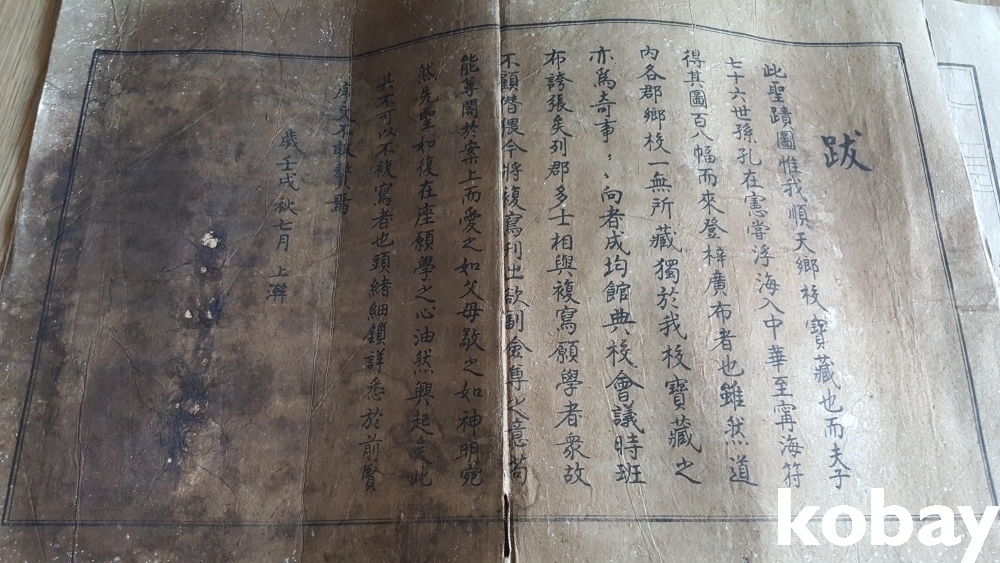 跋
此聖蹟圖惟我順天鄉校寶藏也而夫子
七十六世孫孔在憲嘗浮海入中華至甯海符
得其圖百八幅而來登梓廣布者也雖然道
內各郡鄉校一無所藏獨於我校寶藏之
亦爲奇事〻向者成均館典校會議時班
布誇張矣列郡多士相與複寫願學者衆故
不顧僭偎今將複寫刊出欲副僉尊之意苟
能尊閣於案上而愛之如父母敬之如神明宛
然先聖如復在座願學之心油然興起矣此
其不可以不複寫者也頭緖細鎖詳悉於前賢
序文不敢贅焉
歲壬戌秋七月 上澣
kobay